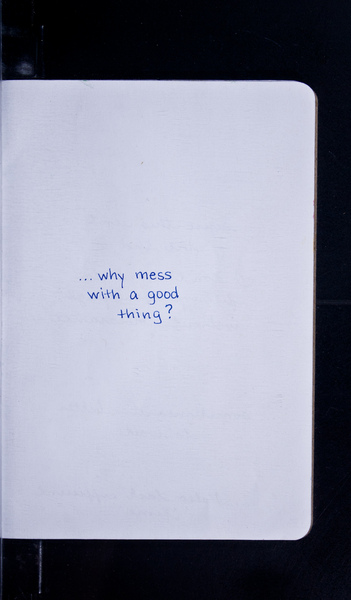 ... why mess
with a good
thing?